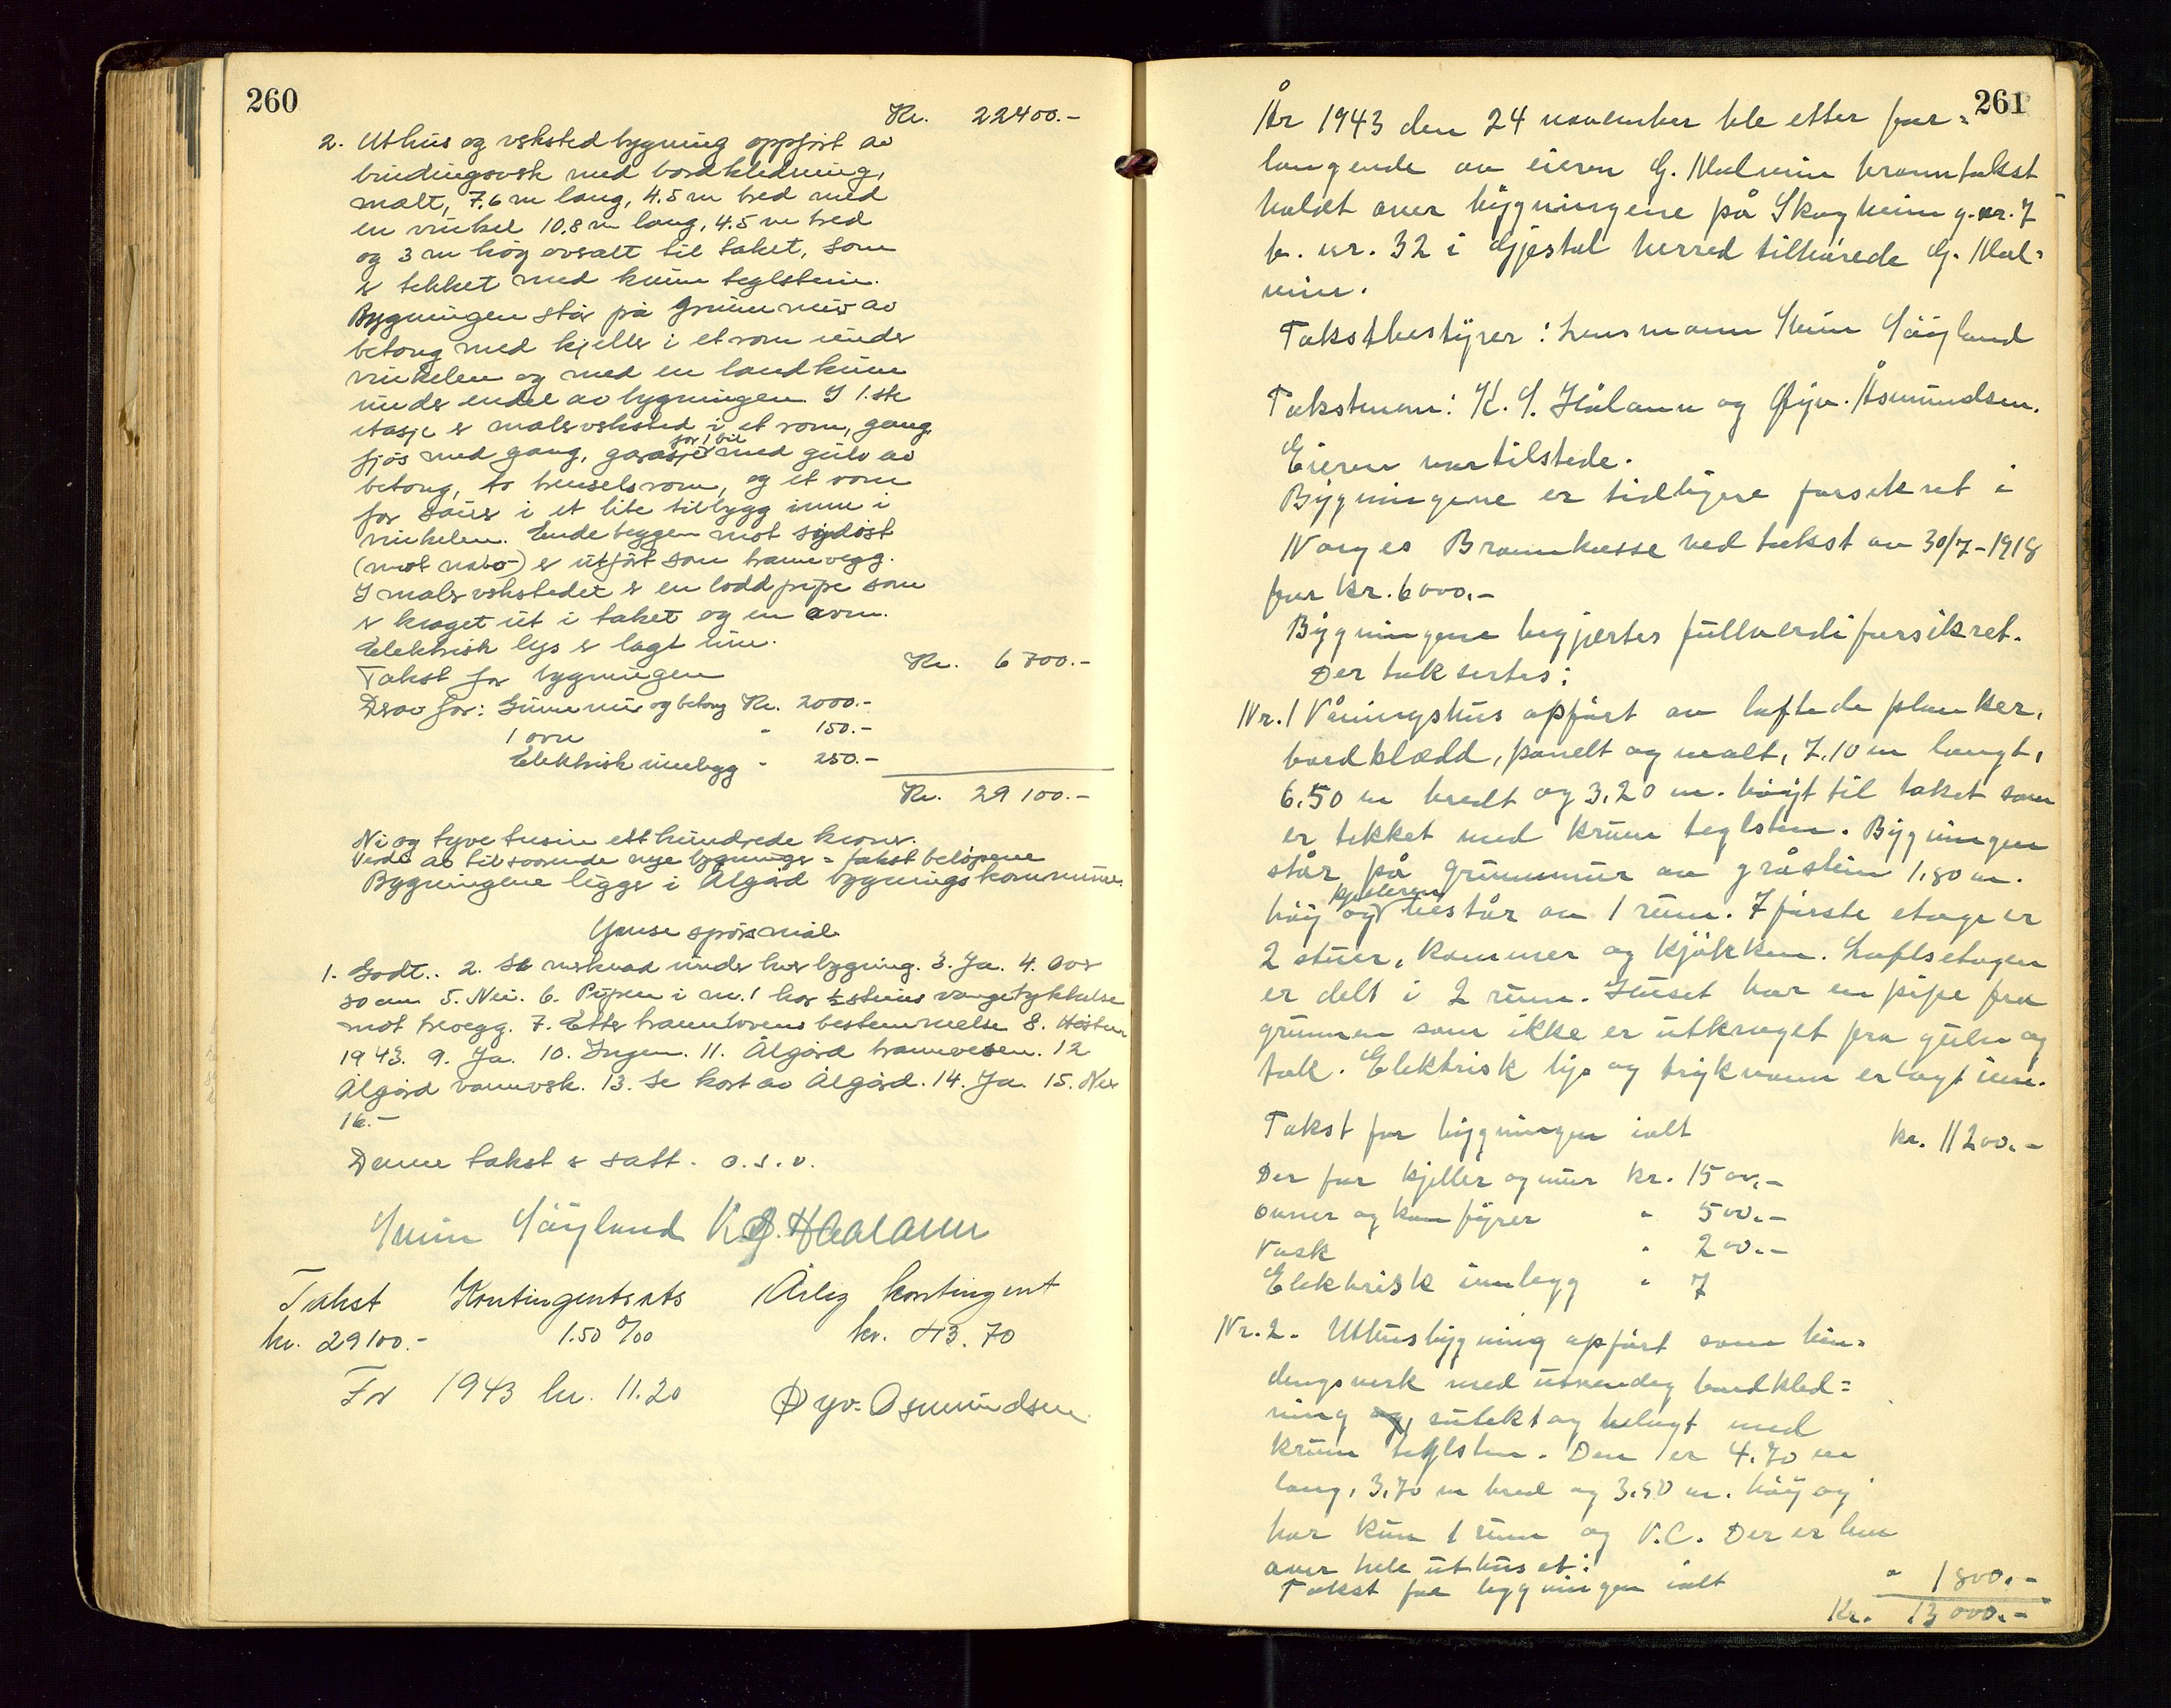 260
Kr. 22400.-
2. Uthus og verkstedbygning oppfört av
bindingsverk med bordkledning,
malt, 7.6 m lang, 4.5 m bred med
en vinkel 10.8 m lang, 4.5 m bred
og 3 m høg avsatt til taket, som
er tekket med krum teglstein.
Bygningen står på grunnmur av
betong med kjeller i et rom under
vinkelen og med en landkum
under endel av bygningen. I 1. ste
etasje er malerverksted i et rom, gang
fjøs med gang, garasje for 1 bil med gulv av
betong, to brenselsrom, og et rom
for sauer i et lite tilbygg inne i
vinkelen. Endeveggen mot sydöst
(mot nabo) er utfört som brannvegg.
I malerverkstedet er en loddpipe som
er kraget ut i taket og en ovn.
Elektrisk lys er lagt inn.
Takst for bygningen Kr. 6700.-
Derav for: Grunnmur og betong Kr. 2000.-
1 ovn " 150.-
Elektrisk innlegg " 250.-
Kr. 29100.-
Ni og tyve tusin etthundrede kroner.
Verdi av tilsvarende nye bygninger = takst beløpene
Bygningene ligger i Ålgård bygningskommune.
Ymse spörsmål
1. Godt.. 2. Se merknad under hver bygning. 3. Ja. 4. Over
30 cm 5. Nei. 6. Pipen i nr. 1 har ½ steins vangetykkelse
mot trevegg. 7. Etter brannlovens bestemmelse 8. Hösten
1943. 9. Ja. 10. Ingen. 11. Ålgård brannvesen. 12
Ålgård vannverk. 13. Se kart av Ålgård. 14. Ja. 15. Nei
16.-
Denne takst er satt. o.s.v.
Svein Söyland K. S. Haaland
Takst Kontingentsats Årlig kontingent
kr. 29100.- 1.50 ‰ kr. 43.70
For 1943 kr. 11.20 Øyv. Osmundsen
261
År 1943 den 24 november ble etter for=
langende av eieren G. Malmin branntakst
holdt over bygningene på Skogheim g.nr. 7
b. nr. 32 i Gjestal herred tilhørede G. Mal=
min.
Takstbestyrer: Lensmann Svein Söyland
Takstmenn: K. S. Hålann og Øyv. Åsmundsen.
Eieren var tilstede.
Bygningene er tidligere forsikret i
Norges Brannkasse ved takst av 30/7-1918
for kr. 6000.-
Bygningene begjærtes fullverdiforsikret.
Der taksertes:
Nr. 1 Våningshus opfört av laftede planker,
bordklædd, panelt og malt, 7.10 m langt,
6.50 m bredt og 3.20 m. höyt til taket som
er tekket med krum teglsten. Bygningen
står på grunnmur av gråstein 1.80 m.
höy og kjelleren består av 1 rum. I förste etage er
2 stuer, kammer og kjökken. Loftsetagen
er delt i 2 rum. Huset har en pipe fra
grunnen som ikke er utkraget fra gulv og
tak. Elektrisk lys og trykvann er lagt inn.
Takst for bygningen ialt kr. 11200.-
Der for kjeller og mur kr. 1500.-
Ovner og komfyrer " 500.-
Vask " 200.-
Elektrisk innlegg " 7
Nr. 2. Uthusbygning opfört som bin=
dingsverk med utvendig bordkled=
ning og, sutekt og belagt med
krum teglsten. Den er 4.70 m
lang, 3.70 m bred og 3.50 m. höy og
har kun 1 rum og V.C. Der er lem
over hele uthuset:
Takst for bygningen ialt " 1800.-
Kr. 13000.-